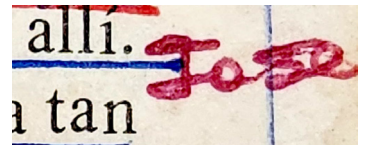 allí. Jose
a tan